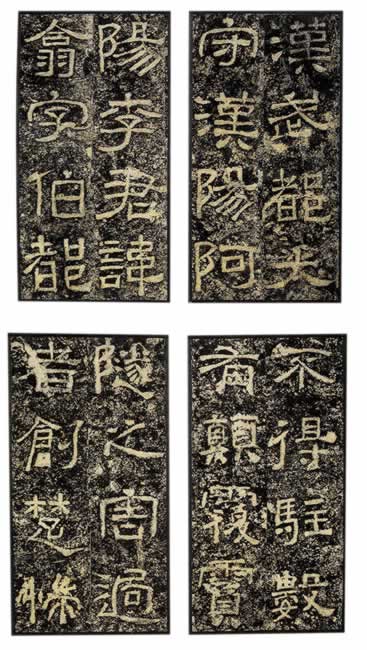 漢武都太
守漢陽阿
陽李君諱
翕字伯都
不得駐數
有顛覆霣
隧之害過
者創楚惴